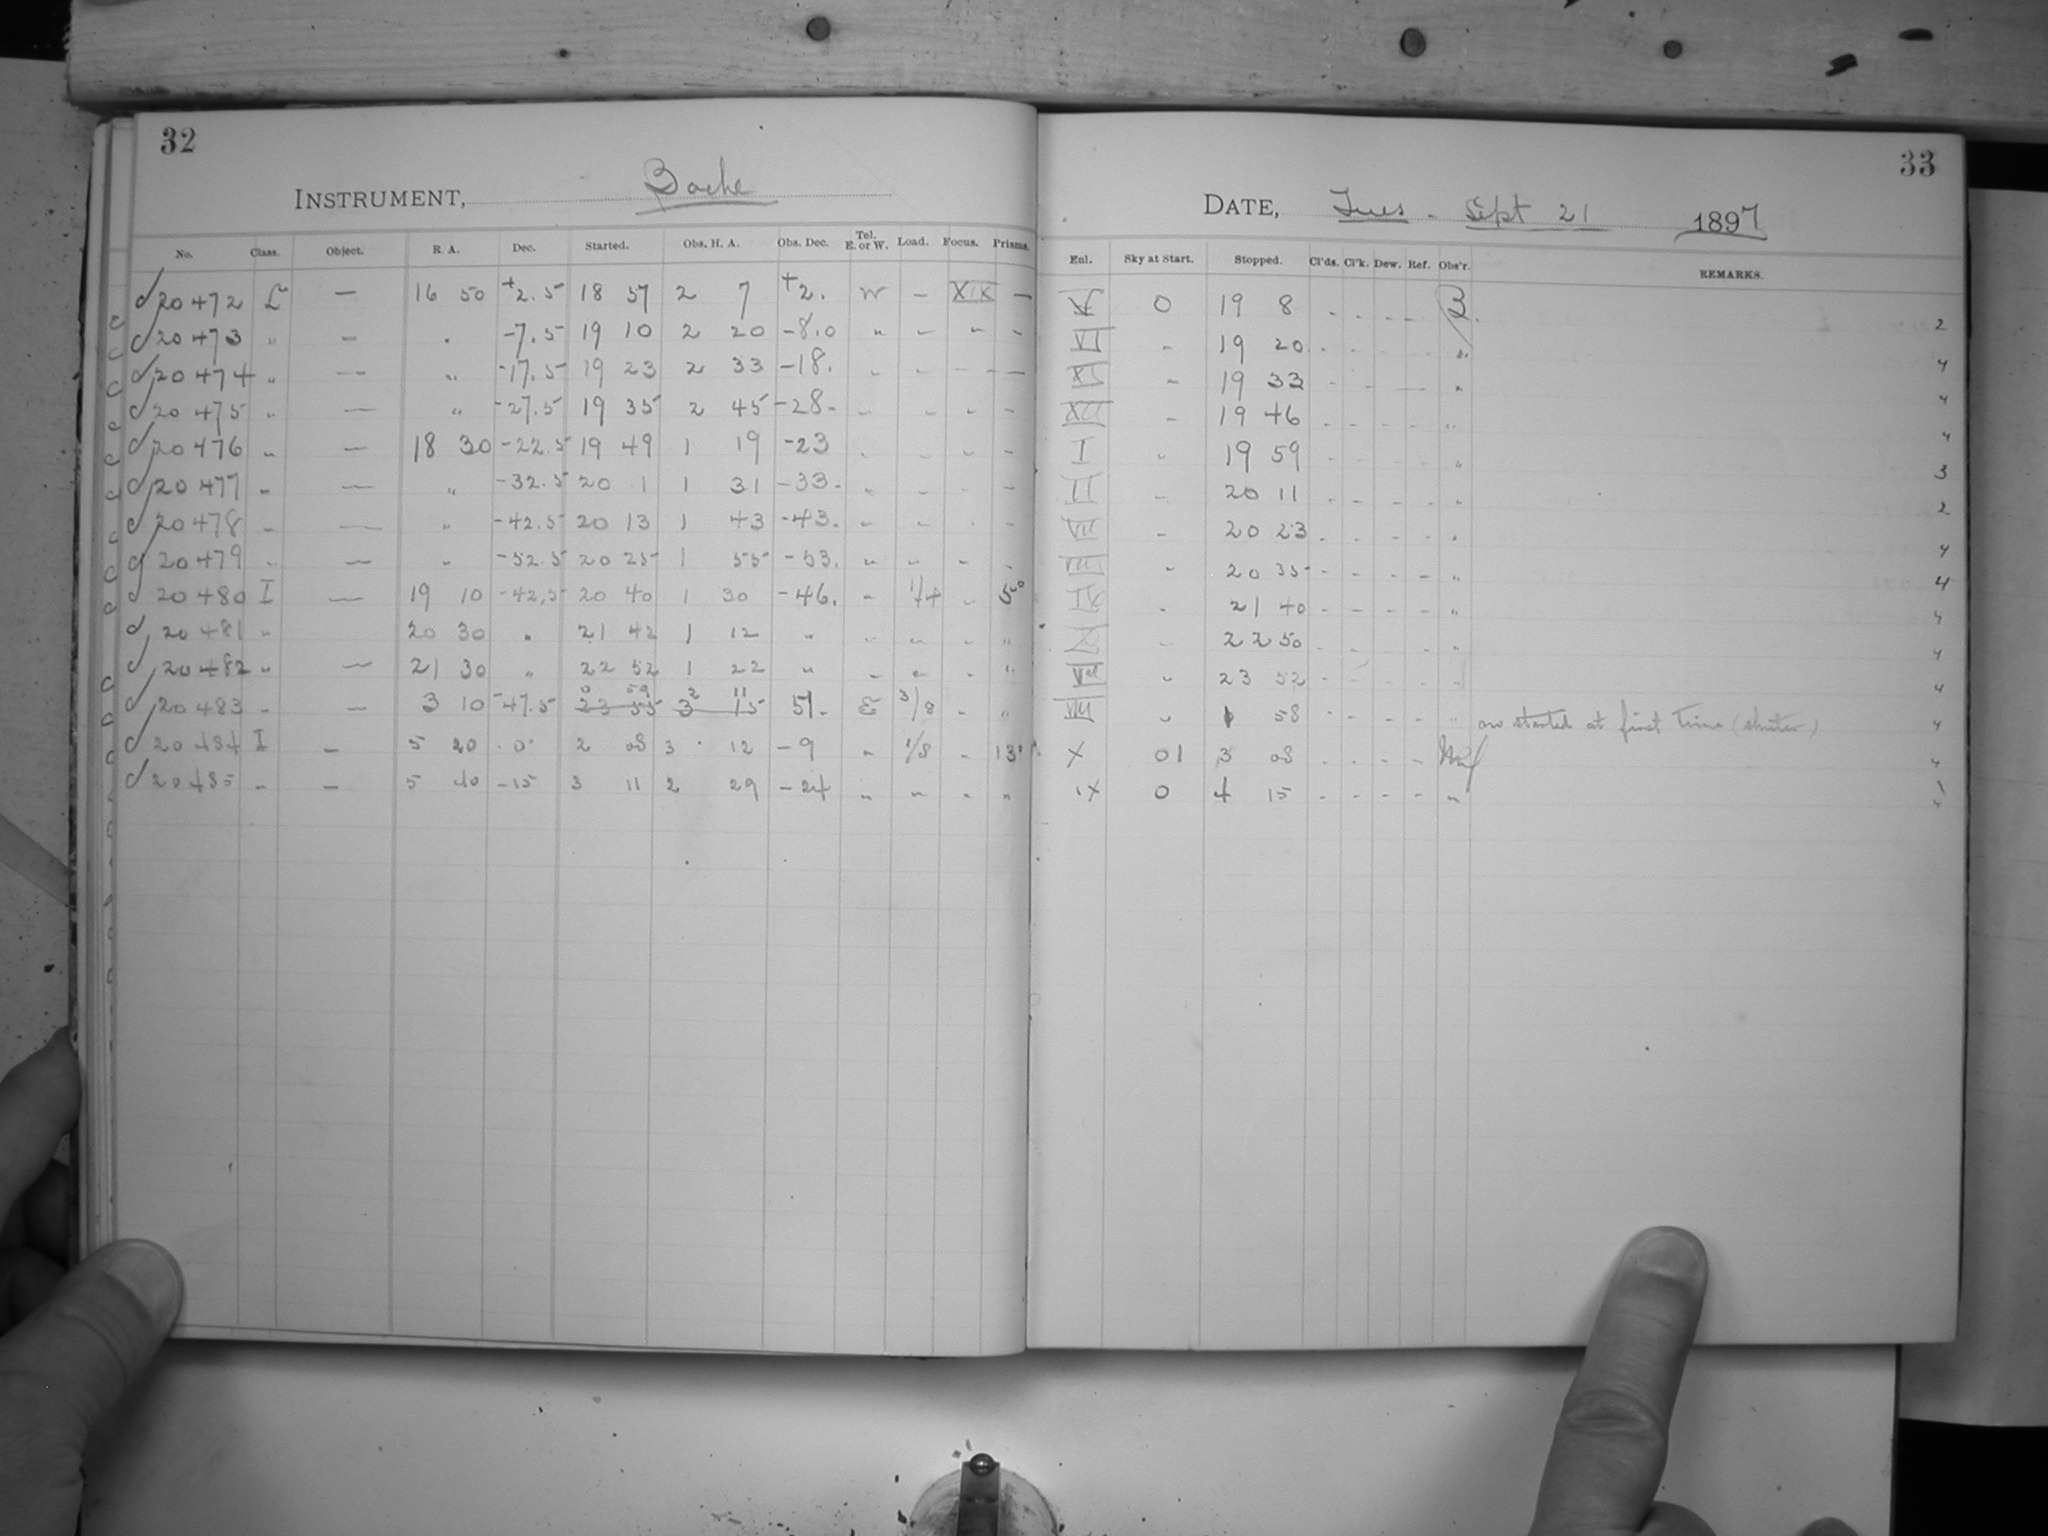 32
INSTRUMENT, Bache
No. Class. Object. R. A. Dec. Started. Obs. H. A. Obs. Dec. Tel. E. or W. Load. Focus. Prisms.
20472 L — 16 50 +2.5 18 57 2 7 +2. W - XIX —
20473 " — " -7.5 19 10 2 20 -8.0 " - " -
20474 " — " -17.5 19 23 2 33 -18. " - - —
20475 " — " -27.5 19 35 2 45 -28. - - " -
20476 " — 18 30 -22.5 19 49 1 19 -23 " - " -
20477 " — " -32.5 20 1 1 31 -33. " - - -
20478 " — " -42.5 20 13 1 43 -43. " - - -
20479 " — " -52.5 20 25 1 55 -53. " " - "
20480 I — 19 10 -42.5 20 40 1 30 -46. " 1/4 " 5°
20481 " 20 30 " 21 42 1 12 " " " " "
20482 " — 21 30 " 22 52 1 22 " " " " "
20483 " — 3 10 -47.5 23 55 0 59 3 15 2 11 51. E 3/8 " "
20484 I — 5 20 0 2 08 3 12 -9 " 1/8 " 13°
20485 " — 5 40 -15 3 11 2 29 -24 " " " "
33
DATE, Tues. Sept 21 1897
Enl. Sky at Start. Stopped. Cl'ds. Cl'k. Dew. Ref. Obs'r. REMARKS.
0 19 8 - - - - B. 2
VI " 19 20 - - - - " 4
XI " 19 33 - - - - " 4
XII " 19 46 - - - - " 4
I " 19 59 - - - - " 3
II " 20 11 - - - - " 2
VII " 20 23 - - - - " 4
VIII " 20 35 - - - - " 4
IX " 21 40 - - - - " 4
X " 22 50 - - - - " 4
" 23 52 - - - - " 4
" 1 58 - - - - " started at first time (shutter) 4
X 01 3 08 - - - - 4
IX 0 4 15 - - - - " 4